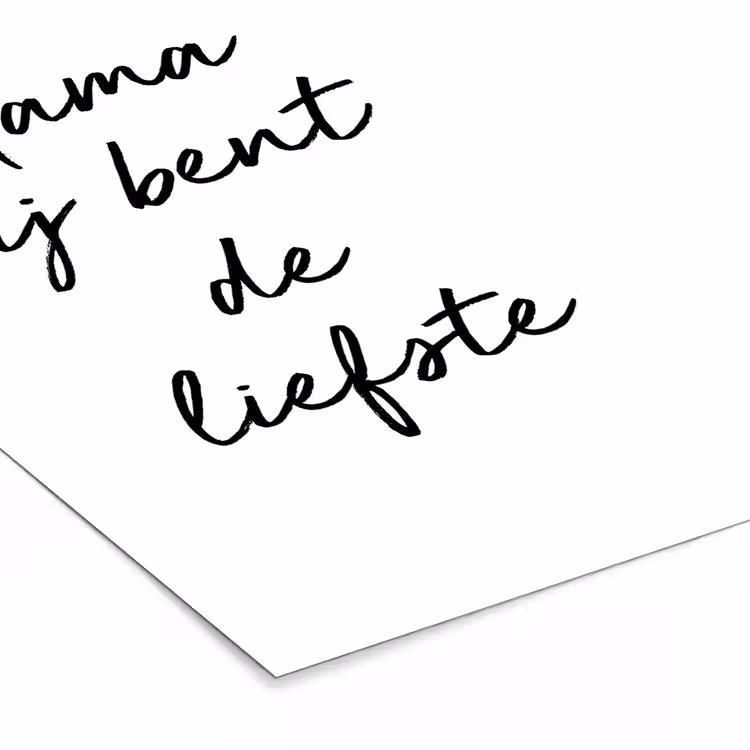 ama
ij bent
de
liefste